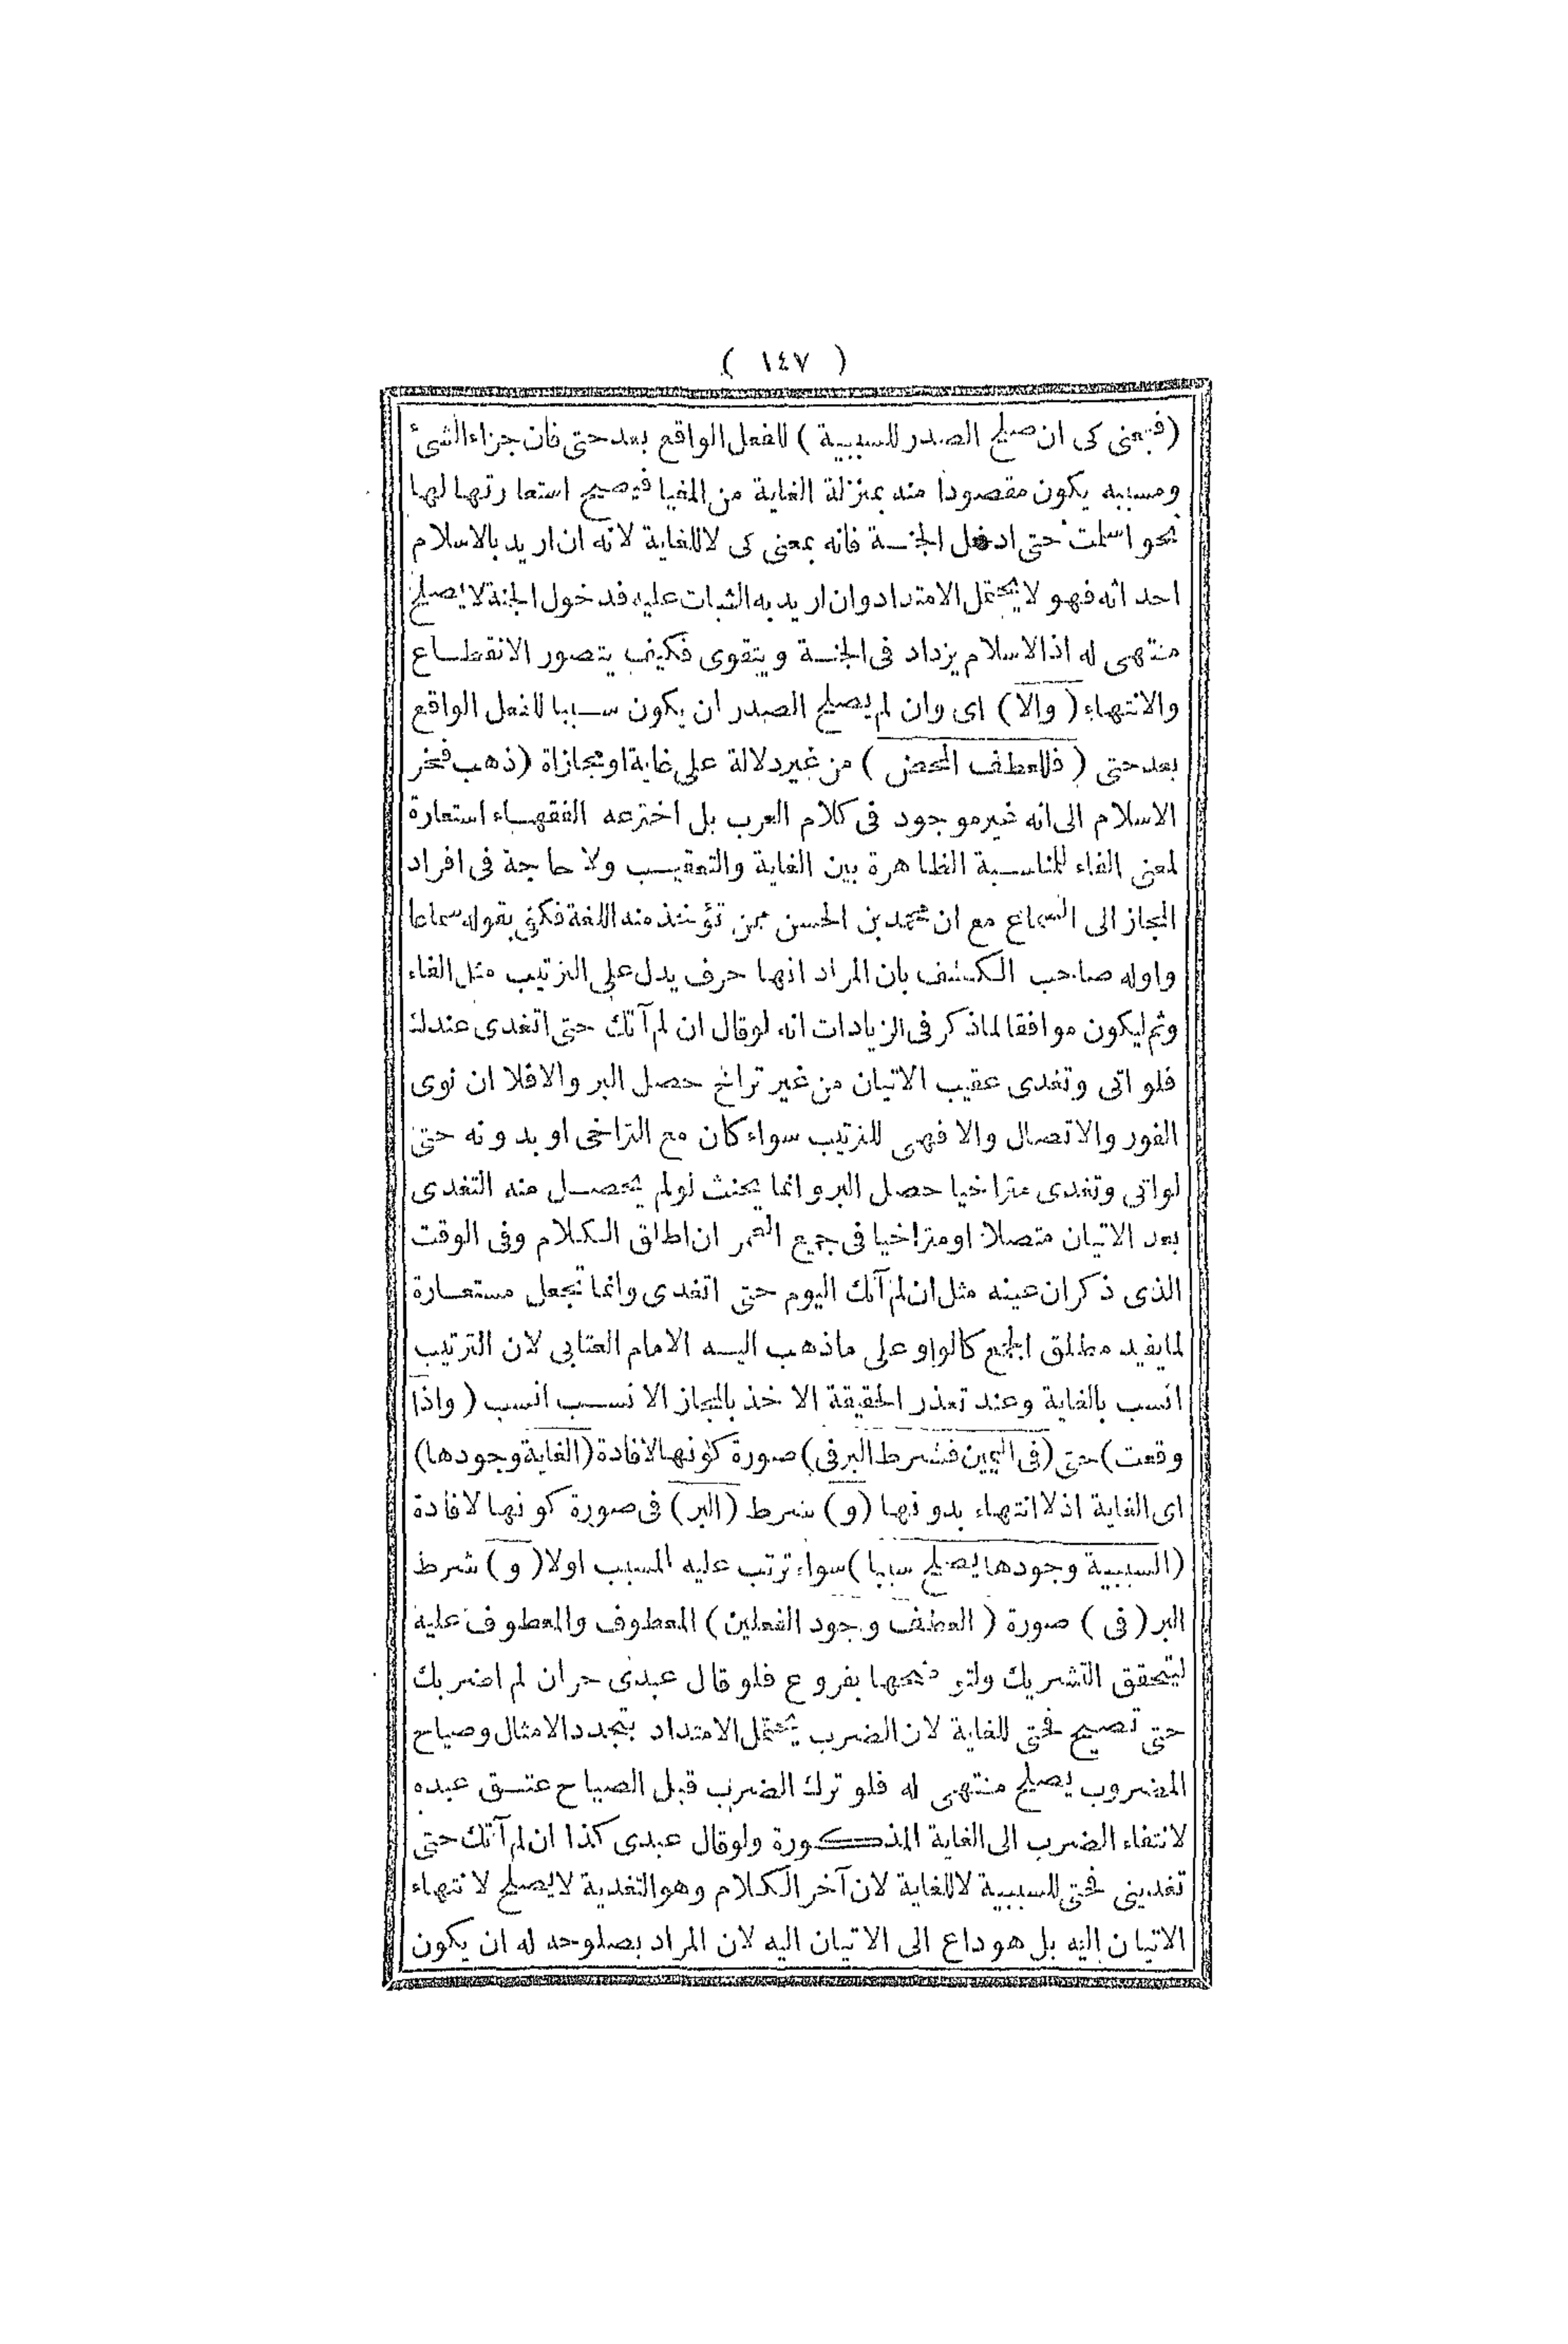 ( ١٤٧ )
(فبمعنى كى ان صلح الصدر للسببية ) للفعل الواقع بعد حتى فان جزاء الشئ
ومسببه يكون مقصودا منه بمنزلة الغاية من المغيا فيصح استعارتها لها
نحو اسلمت حتى ادخل الجنـة فانه بمعنى كى لا للغاية لانه ان اريد بالاسلام
احداثه فهو لا يحتمل الامتداد وان اريد به الثبات عليه فدخول الجنة لا يصلح
منتهى له اذ الاسلام يزداد فى الجنـة ويتقوى فكيف يتصور الانقطاع
والانتهاء ( والا ) اى وان لم يصلح الصدر ان يكون سببا للفعل الواقع
بعد حتى ( فللعطف المحض ) من غير دلالة على غاية او مجازاة (ذهب فخر
الاسلام الى انه غير موجود فى كلام العرب بل اخترعه الفقهاء استعارة
لمعنى الفاء للمناسبة الظاهرة بين الغاية والتعقيب ولا حاجة فى افراد
المجاز الى السماع مع ان محمد بن الحسن ممن تؤخذ منه اللغة فكفى بقوله سماعا
واوله صاحب الكشف بان المراد انها حرف يدل على الترتيب مثل الفاء
وثم ليكون موافقا لما ذكر فى الزيادات انه لو قال ان لم آتك حتى اتغدى عندك
فلو اتى وتغدى عقيب الاتيان من غير تراخ حصل البر والا فلا ان نوى
الفور والاتصال والا فهى للترتيب سواء كان مع التراخى او بدونه حتى
لو اتى وتغدى متراخيا حصل البر وانما يحنث لو لم يحصل منه التغدى
بعد الاتيان متصلا او متراخيا فى جميع العمر ان اطلق الكلام وفى الوقت
الذى ذكر ان عينه مثل ان لم آتك اليوم حتى اتغدى وانما تجعل مستعارة
لما يفيد مطلق الجمع كالواو على ما ذهب اليه الامام العتابى لان الترتيب
انسب بالغاية وعند تعذر الحقيقة الاخذ بالمجاز الانسب انسب ( واذا
وقعت ) حتى (فى اليمين فشرط البر فى ) صورة كونها لافادة (الغاية وجودها)
اى الغاية اذ لا انتهاء بدونها (و) شرط (البر) فى صورة كونها لافادة
(السببية وجودها يصلح سببا ) سواء ترتب عليه المسبب اولا ( و ) شرط
البر ( فى ) صورة ( العطف وجود الفعلين ) المعطوف والمعطوف عليه
ليتحقق التشريك ولنوضحها بفروع فلو قال عبدى حر ان لم اضربك
حتى تصيح فحتى للغاية لان الضرب يحتمل الامتداد بتجدد الامثال وصياح
المضروب يصلح منتهى له فلو ترك الضرب قبل الصياح عتق عبده
لانتفاء الضرب الى الغاية المذكورة ولو قال عبدى كذا ان لم آتك حتى
تغدينى فحتى للسببية لا للغاية لان آخر الكلام وهو التغدية لا يصلح لانتهاء
الاتيان اليه بل هو داع الى الاتيان اليه لان المراد بصلوحه له ان يكون